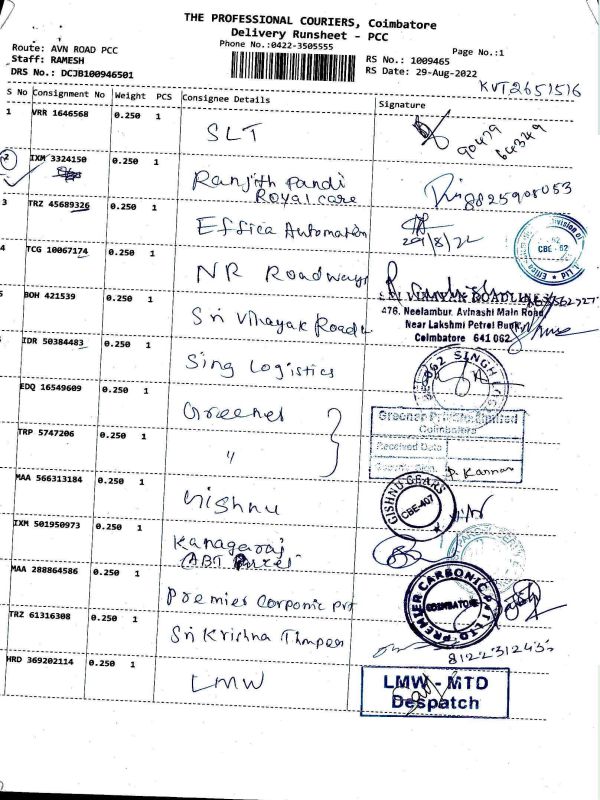 THE PROFESSIONAL COURIERS, Coimbatore
Delivery Runsheet - PCC
Phone No.:0422-3505555
Page No.:1
Route: AVN ROAD PCC
Staff: RAMESH
DRS No.: DCJB100946501
RS No.: 1009465
RS Date: 29-Aug-2022
KVT2651516
S No Consignment No Weight PCS Consignee Details Signature
1 VRR 1646568 0.250 1 SLT
90479
64349
2 IXM 3324150 0.250 1 Ranjith Pandi
Royal care
8825908053
3 TRZ 45689326 0.250 1 Effica Automation
29/8/22
CBE - 62
4 TCG 10067174 0.250 1 NR Roadways
5 BOH 421539 0.250 1 Sri Vinayak Roadli
SRI VINAYAK ROADLINES
476, Neelambur, Avinashi Main Road
Near Lakshmi Petrol Bunk,
Coimbatore 641 062
IDR 50384483 0.250 1 Sing Logistics
EDQ 16549609 0.250 1 Greenel
Coimbatore
Received Date
P. Kannan
TRP 5747206 0.250 1 "
MAA 566313184 0.250 1 Gishnu
GISHNU GEARS
CBE-407
IXM 501950973 0.250 1 Kanagaraj
ABT
MAA 288864586 0.250 1 Premier Corponic Pvt
PREMIER CARBONIC PVT LTD
COIMBATORE
TRZ 61316308 0.250 1 Sri Krishna
HRD 369202114 0.250 1 LMW
LMW - MTD
Despatch